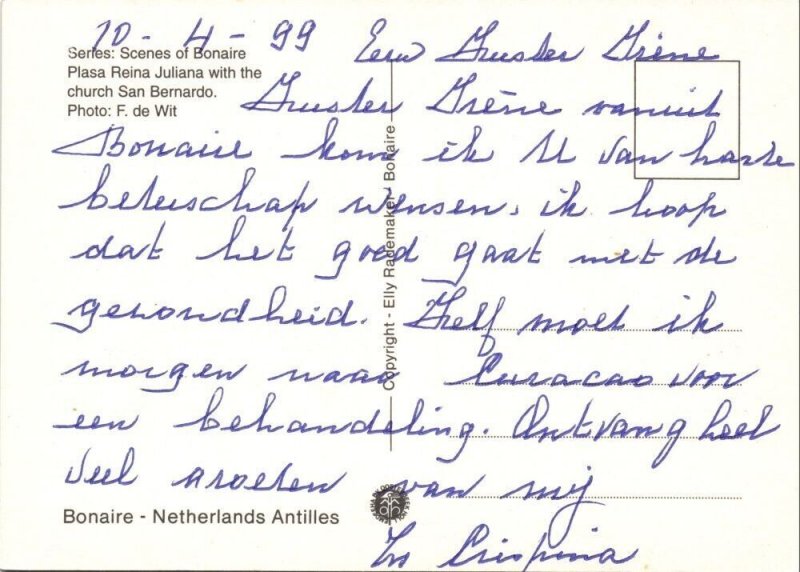 10-4-99 Eerw Zuster Irène
Series: Scenes of Bonaire
Plasa Reina Juliana with the
church San Bernardo.
Photo: F. de Wit
Zuster Irène vanuit
Bonaire kom ik U van harte
beterschap wensen. ik hoop
dat het goed gaat met de
gezondheid. Zelf moet ik
morgen naar Curacao voor
een behandeling. Ontvang heel
veel groeten van mij
Zr Crispina
Copyright - Elly Rademaker - Bonaire
Bonaire - Netherlands Antilles